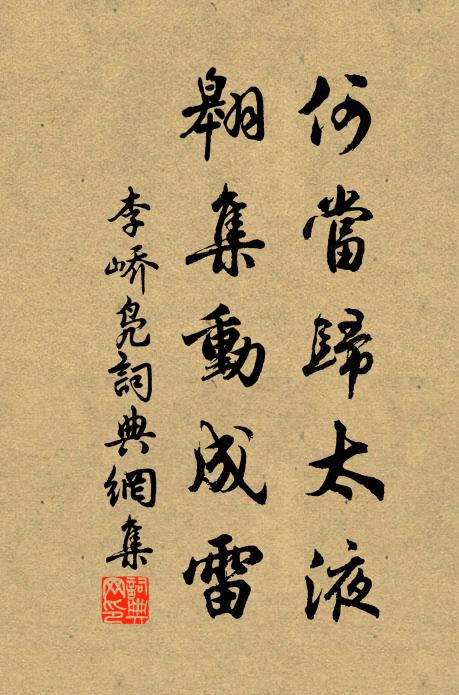 何當歸太液
翱集動成雷
李嶠鳧詞典網集
詞典網印